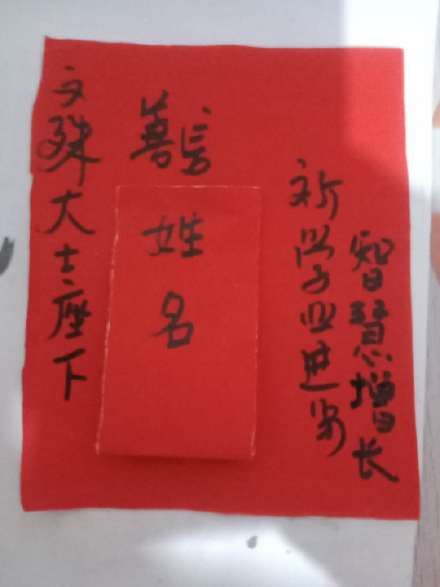 文殊大士座下
善信
姓
名
祈学业进步
智慧增长